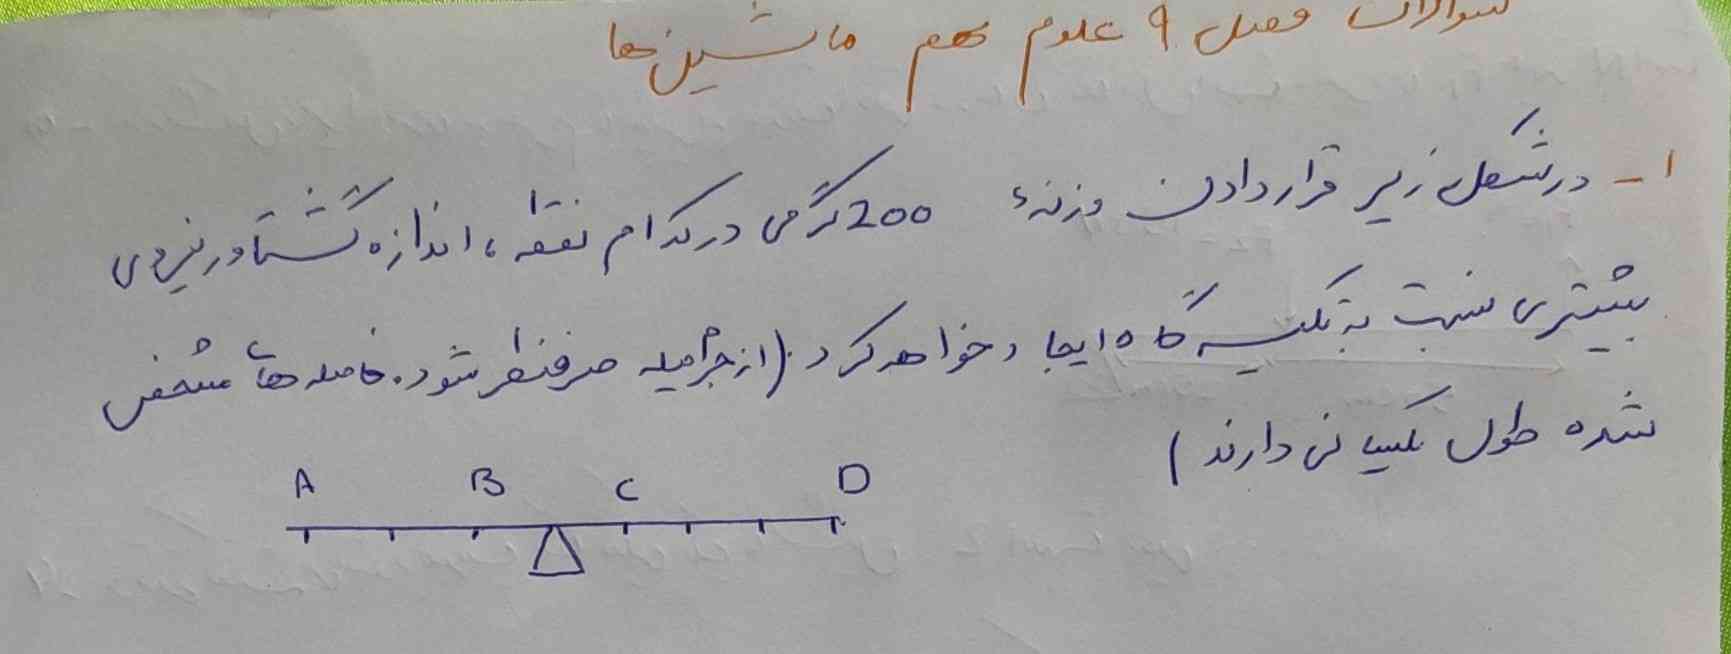 سوالات فصل ۹ علوم نهم ماشین‌ها
۱- در شکل زیر قرار دادن وزنهٔ 200 گرمی در کدام نقطه، اندازه گشتاور نیروی
بیشتری نسبت به تکیه گاه ایجاد خواهد کرد (از جرم میله صرفنظر شود. فاصله های مشخص
شده طول یکسانی دارند)
A B C D